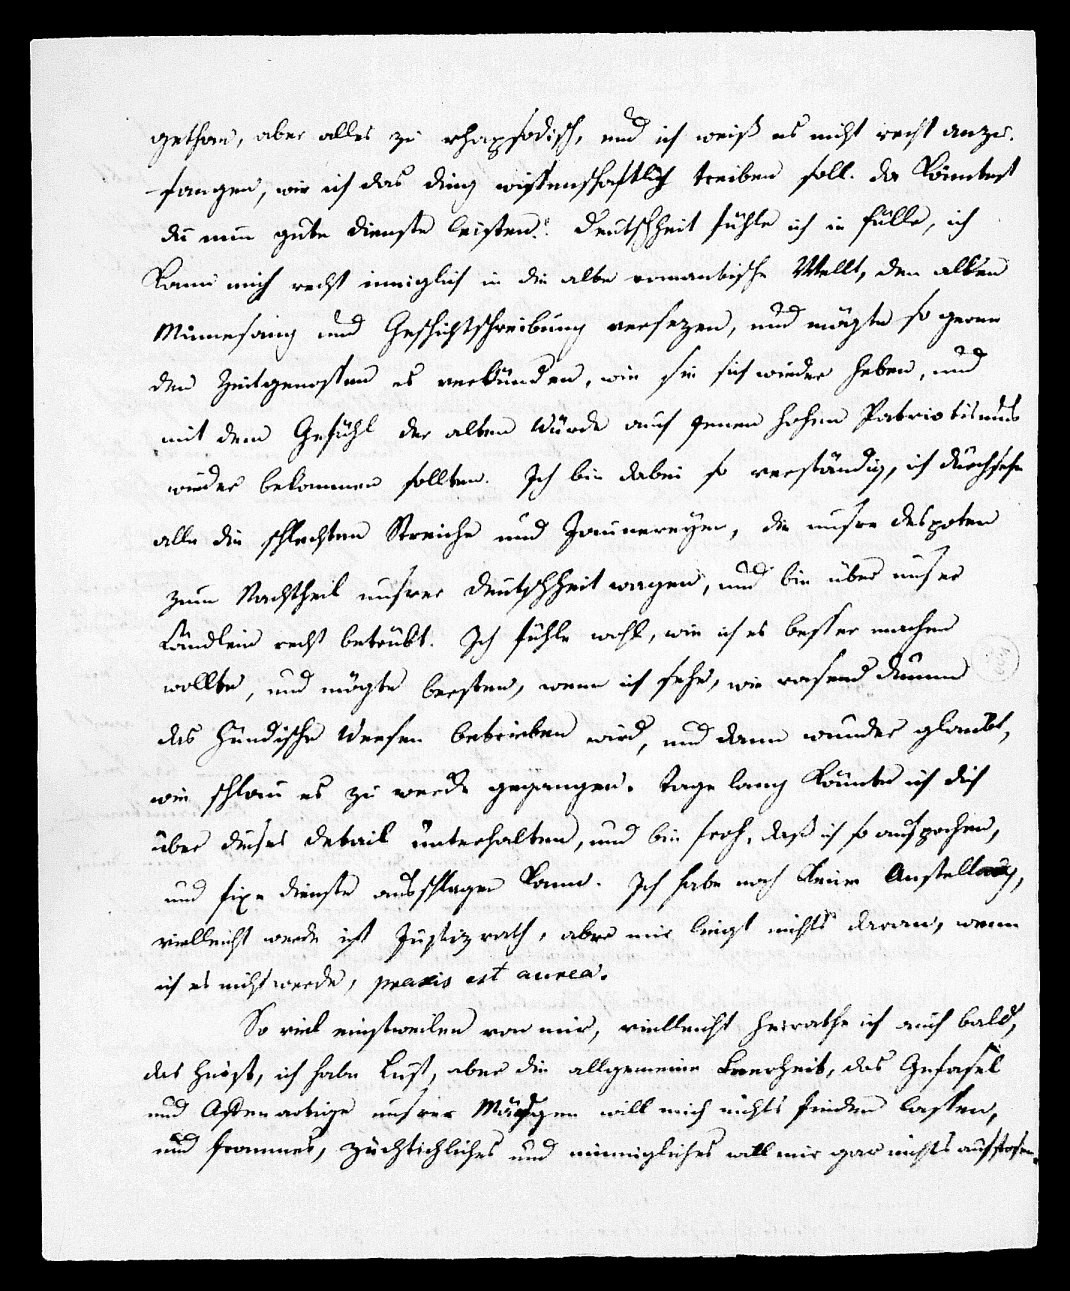 gethan, aber alles zu rhapsodisch, und ich weiß es nicht recht anzu-
fangen, wie ich das ding wissenschaftlich treiben soll. da könntest
du mir gute dienste leisten. Deutschheit fühle ich in fülle, ich
kann mich recht inniglich in die alte romantische Wellt, den alten
Minnesang und Geschichtschreibung versezen, und mögte so gerne
den Zeitgenossen es verkünden, wie sie sich wieder heben, und
mit dem Gefühl der alten Würde auch jenen hohen Patriotismus
wieder bekommen sollten. Ich bin dabei so verständig, ich durchsehe
alle die schlechten Streiche und Gaunereyen, die unsre despoten
zum Nachtheil unsrer Deutschheit wagen, und bin über unser
Ländlein recht betrübt. Ich fühle wohl, wie ich es besser machen
wollte, und mögte bersten, wenn ich sehe, wie rasend dumm
das hündische Weesen betrieben wird, und dann wunder glaubt,
wie schlau es zu werke gegangen. Tage lang könnte ich dich
über dieses detail unterhalten, und bin froh, daß ich so auf
und fixe dienste ausschlagen kann. Ich habe noch keine Anstellung,
vielleicht werde ich Justizrath, aber mir liegt nichts daran, wenn
ich es nicht werde, praxis est aurea.
So viel einstweilen von mir, vielleicht heirathe ich auch bald,
das heißt, ich habe Lust, aber die allgemeine Leerheit, das Gefasel
und Affenartige unsrer Mädgen will mich nichts finden lassen,
und frommes, züchtichliches und minnigliches will mir gar nichts aufstosen.